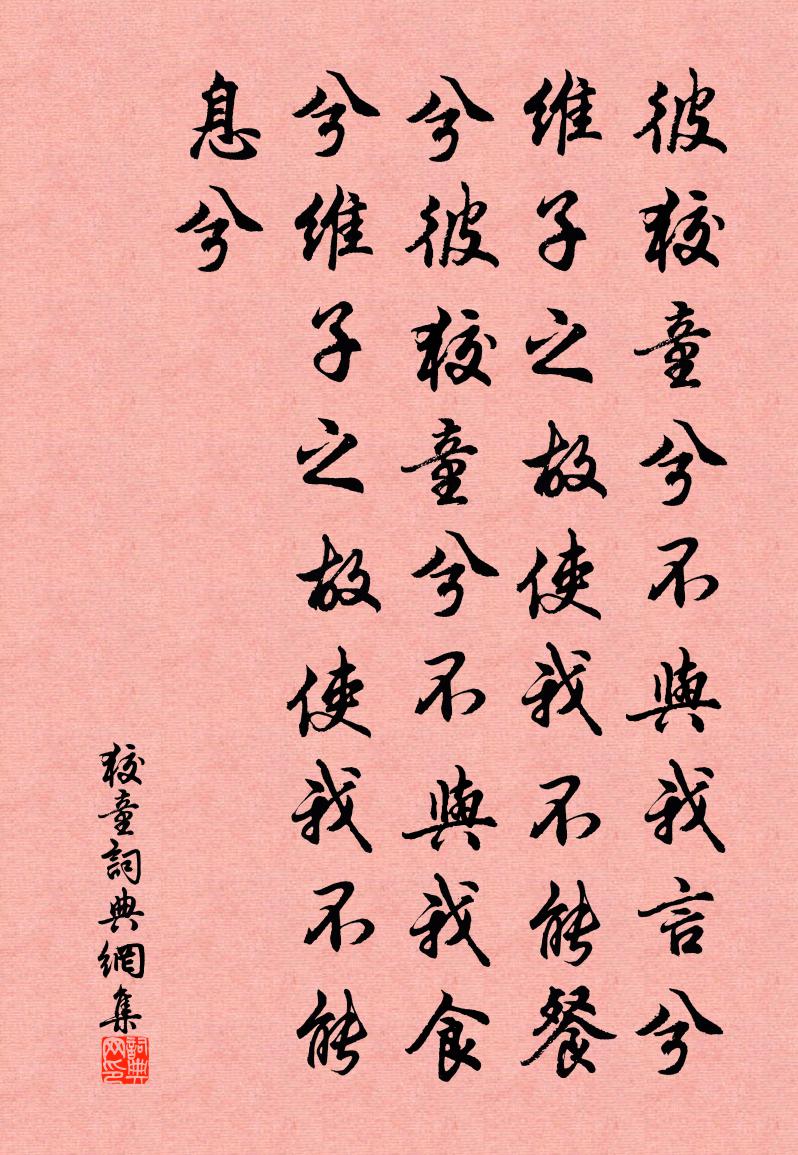 彼狡童兮不與我言兮
維子之故使我不能餐
兮彼狡童兮不與我食
兮維子之故使我不能
息兮
狡童詞典網集
詞典网印